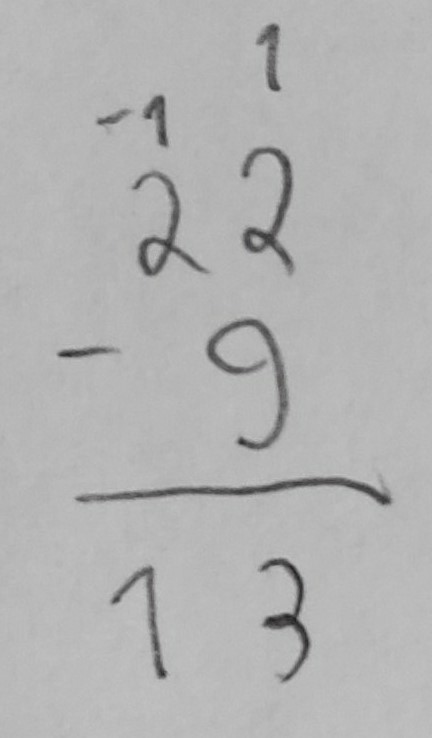 1
-1
22
- 9
13